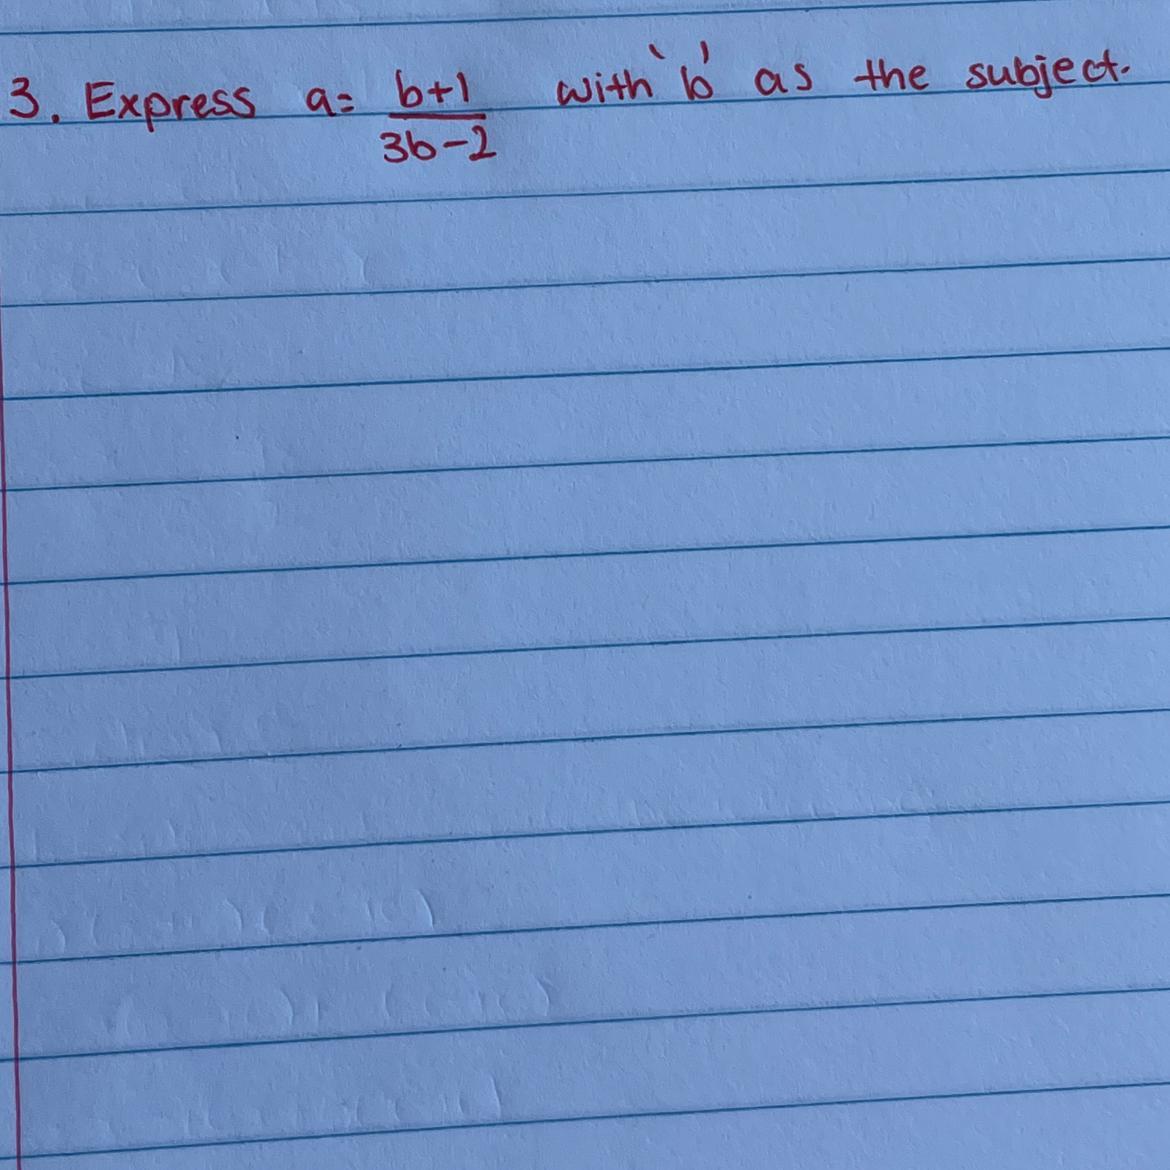 3. Express a = b+1 / 3b-2 with 'b' as the subject.